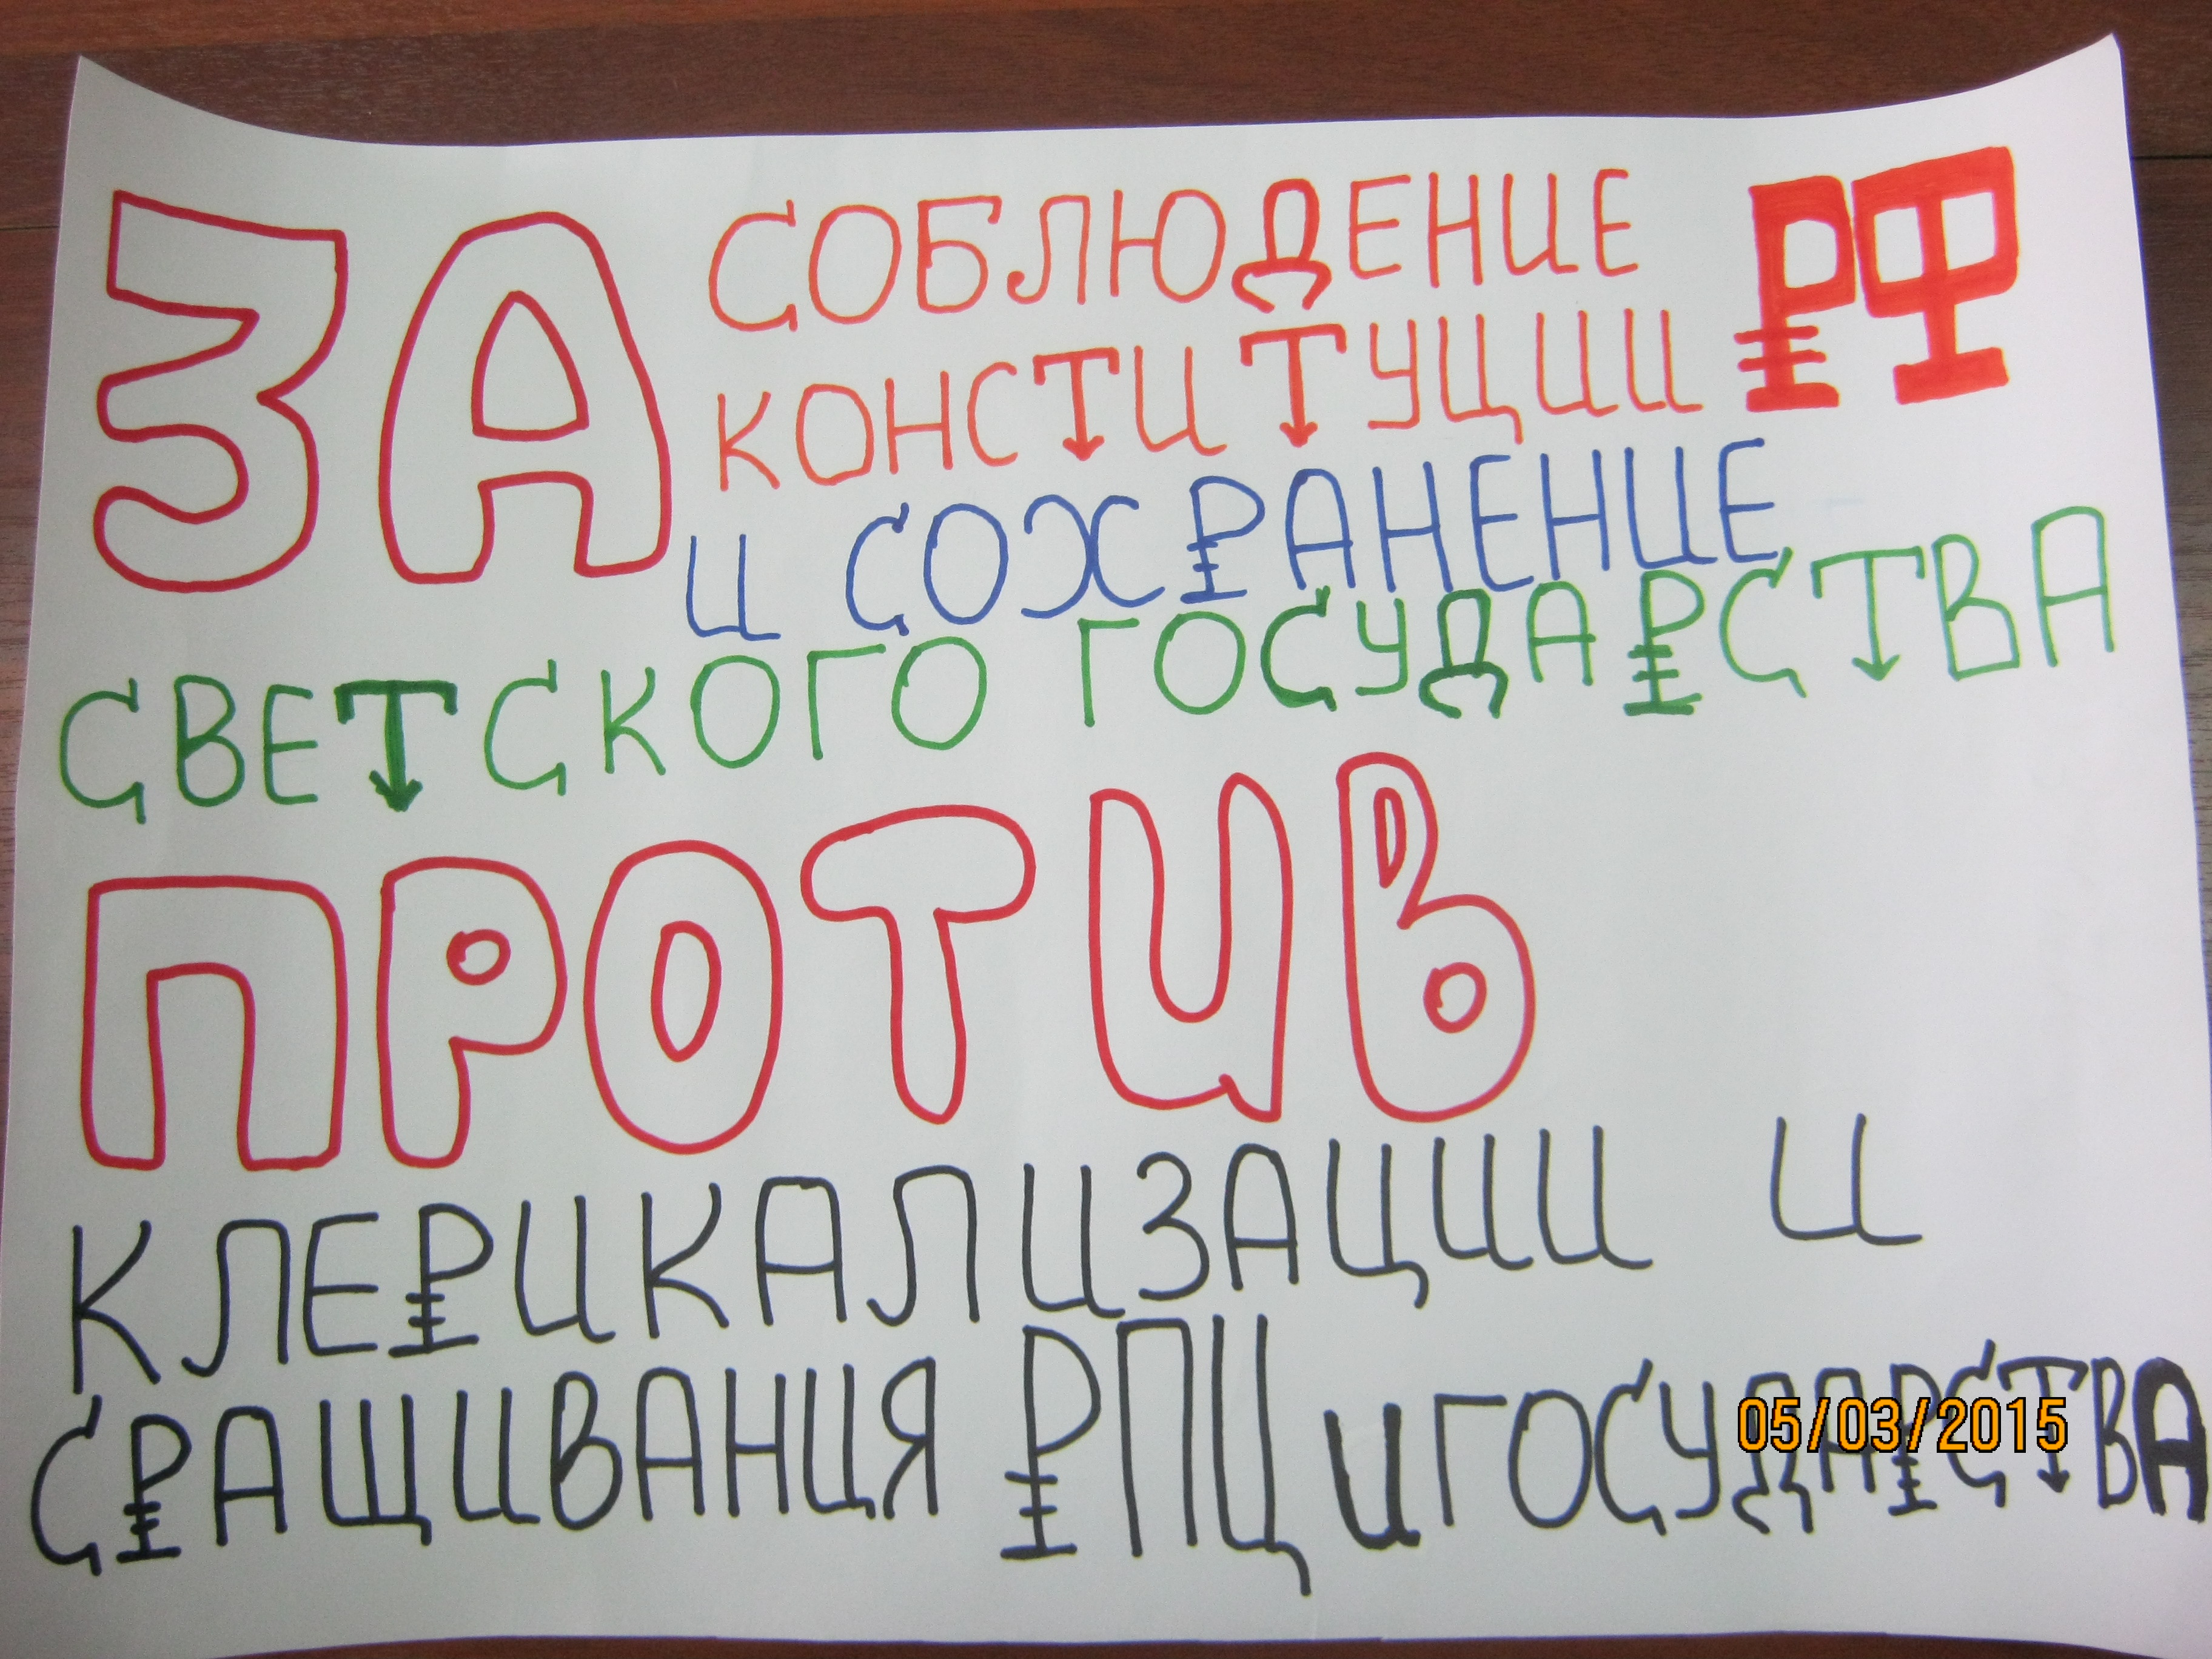 ЗА СОБЛЮДЕНИЕ
КОНСТИТУЦИИ РФ
И СОХРАНЕНИЕ
СВЕТСКОГО ГОСУДАРСТВА
ПРОТИВ
КЛЕРИКАЛИЗАЦИИ И
СРАЩИВАНИЯ РПЦ И ГОСУДАРСТВА
05/03/2015